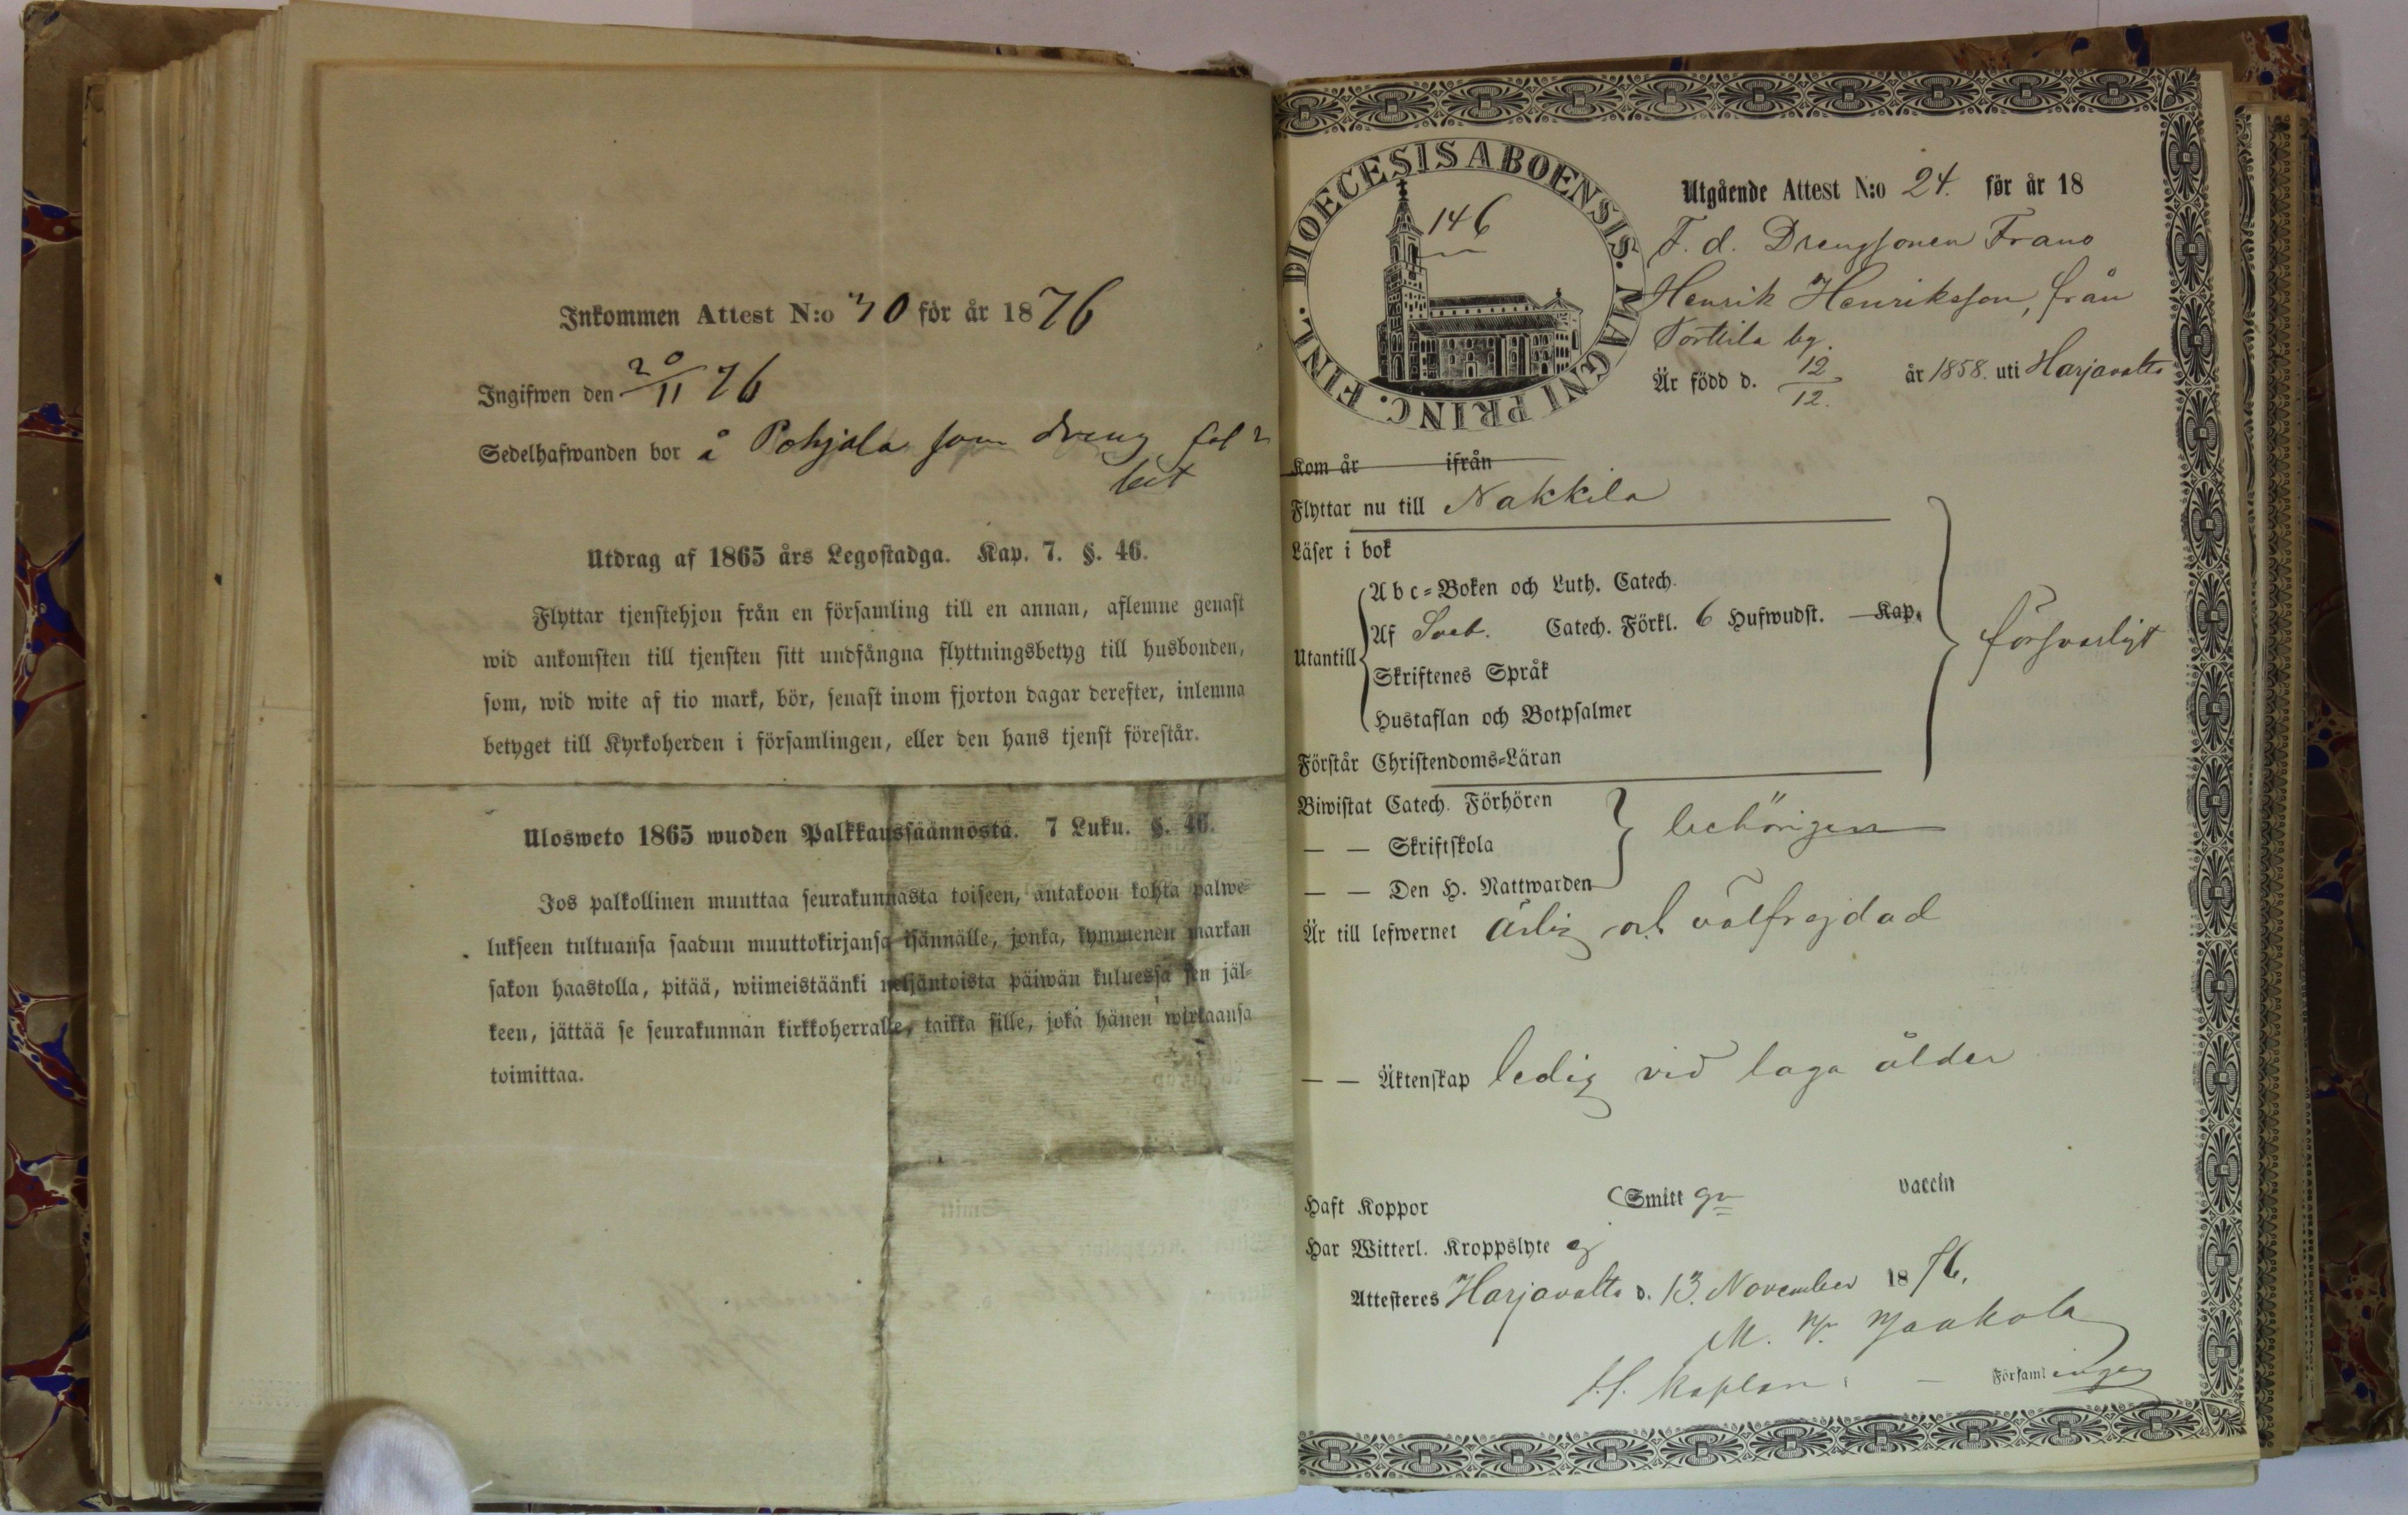 Inkommen Attest N:o 30 för år 1876
Ingifwen den 20/11 76
Sedelhafwanden bor å Pohjala som dreng
Utdrag af 1865 års Legostadga. Kap. 7. §. 46.
Flyttar tjenstehjon från en församling till en annan, aflemne genast
wid ankomsten till tjensten sitt undfångna flyttningsbetyg till husbonden,
som, wid wite af tio mark, bör, senast inom fjorton dagar derefter, inlemna
betyget till Kyrkoherden i församlingen, eller den hans tjenst förestår.
Ulosweto 1865 wuoden Palkkaussäännöstä. 7 Luku. §. 46.
Jos palkollinen muuttaa seurakunnasta toiseen, antakoon kohta palwe-
lukseen tultuansa saadun muuttokirjansa isännälle, jonka, kymmenen markan
sakon haastolla, pitää, wiimeistäänki neljäntoista päiwän kuluessa sen jäl-
keen, jättää se seurakunnan kirkkoherralle, taikka sille, joka hänen wirkaansa
toimittaa.
DIOECESIS ABOENSIS. MAGNI PRINC. FINL.
146
Utgående Attest N:o 24. för år 18
F. d. Drengsonen Frans
Henrik Henriksson, från
Torttila by.
Är född d. 12/12. år 1858. uti Harjavalta
Kom år ifrån
Flyttar nu till Nakkila
Läser i bok
Utantill
Abc-Boken och Luth. Catech.
Af Sveb. Catech. Förkl. 6 Hufwudst. Kap.
Skriftenes Språk
Hustaflan och Botpsalmer
försvarligt
Förstår Christendoms-Läran
Biwistat Catech. Förhören
— — Skriftskola
— — Den H. Nattwarden
behörigen
Är till lefwernet ärlig och välfrejdad
— — Äktenskap ledig vid laga ålder
Haft Koppor Smitt vaccin
Har Witterl. Kroppslyte ej
Attesteres Harjavalta d. 13. November 1876.
Kaplan Församlingen